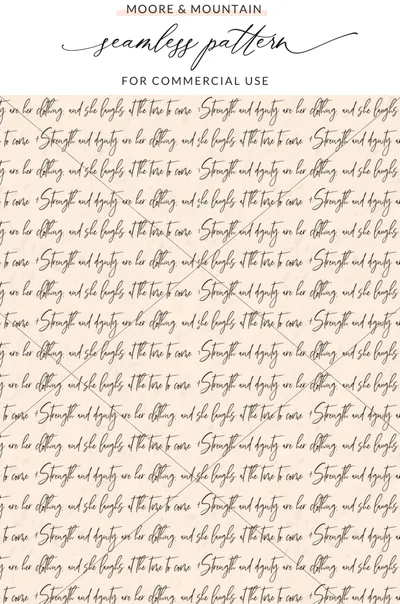 MOORE & MOUNTAIN
seamless pattern
FOR COMMERCIAL USE
are her clothing, and she laughs at the time to come. +Strength and dignity are her clothing, and she laughs
to come. +Strength and dignity are her clothing, and she laughs at the time to come. +Strength and dignity are
are her clothing, and she laughs at the time to come. +Strength and dignity are her clothing, and she laughs
to come. +Strength and dignity are her clothing, and she laughs at the time to come. +Strength and dignity are
are her clothing, and she laughs at the time to come. +Strength and dignity are her clothing, and she laughs
to come. +Strength and dignity are her clothing, and she laughs at the time to come. +Strength and dignity are
are her clothing, and she laughs at the time to come. +Strength and dignity are her clothing, and she laughs
to come. +Strength and dignity are her clothing, and she laughs at the time to come. +Strength and dignity are
are her clothing, and she laughs at the time to come. +Strength and dignity are her clothing, and she laughs
are her clothing, and she laughs at the time to come. +Strength and dignity are her clothing, and she laughs
to come. +Strength and dignity are her clothing, and she laughs at the time to come. +Strength and dignity are
are her clothing, and she laughs at the time to come. +Strength and dignity are her clothing, and she laughs
to come. +Strength and dignity are her clothing, and she laughs at the time to come. +Strength and dignity are
are her clothing, and she laughs at the time to come. +Strength and dignity are her clothing, and she laughs
to come. +Strength and dignity are her clothing, and she laughs at the time to come. +Strength and dignity are
are her clothing, and she laughs at the time to come. +Strength and dignity are her clothing, and she laughs
to come. +Strength and dignity are her clothing, and she laughs at the time to come. +Strength and dignity are